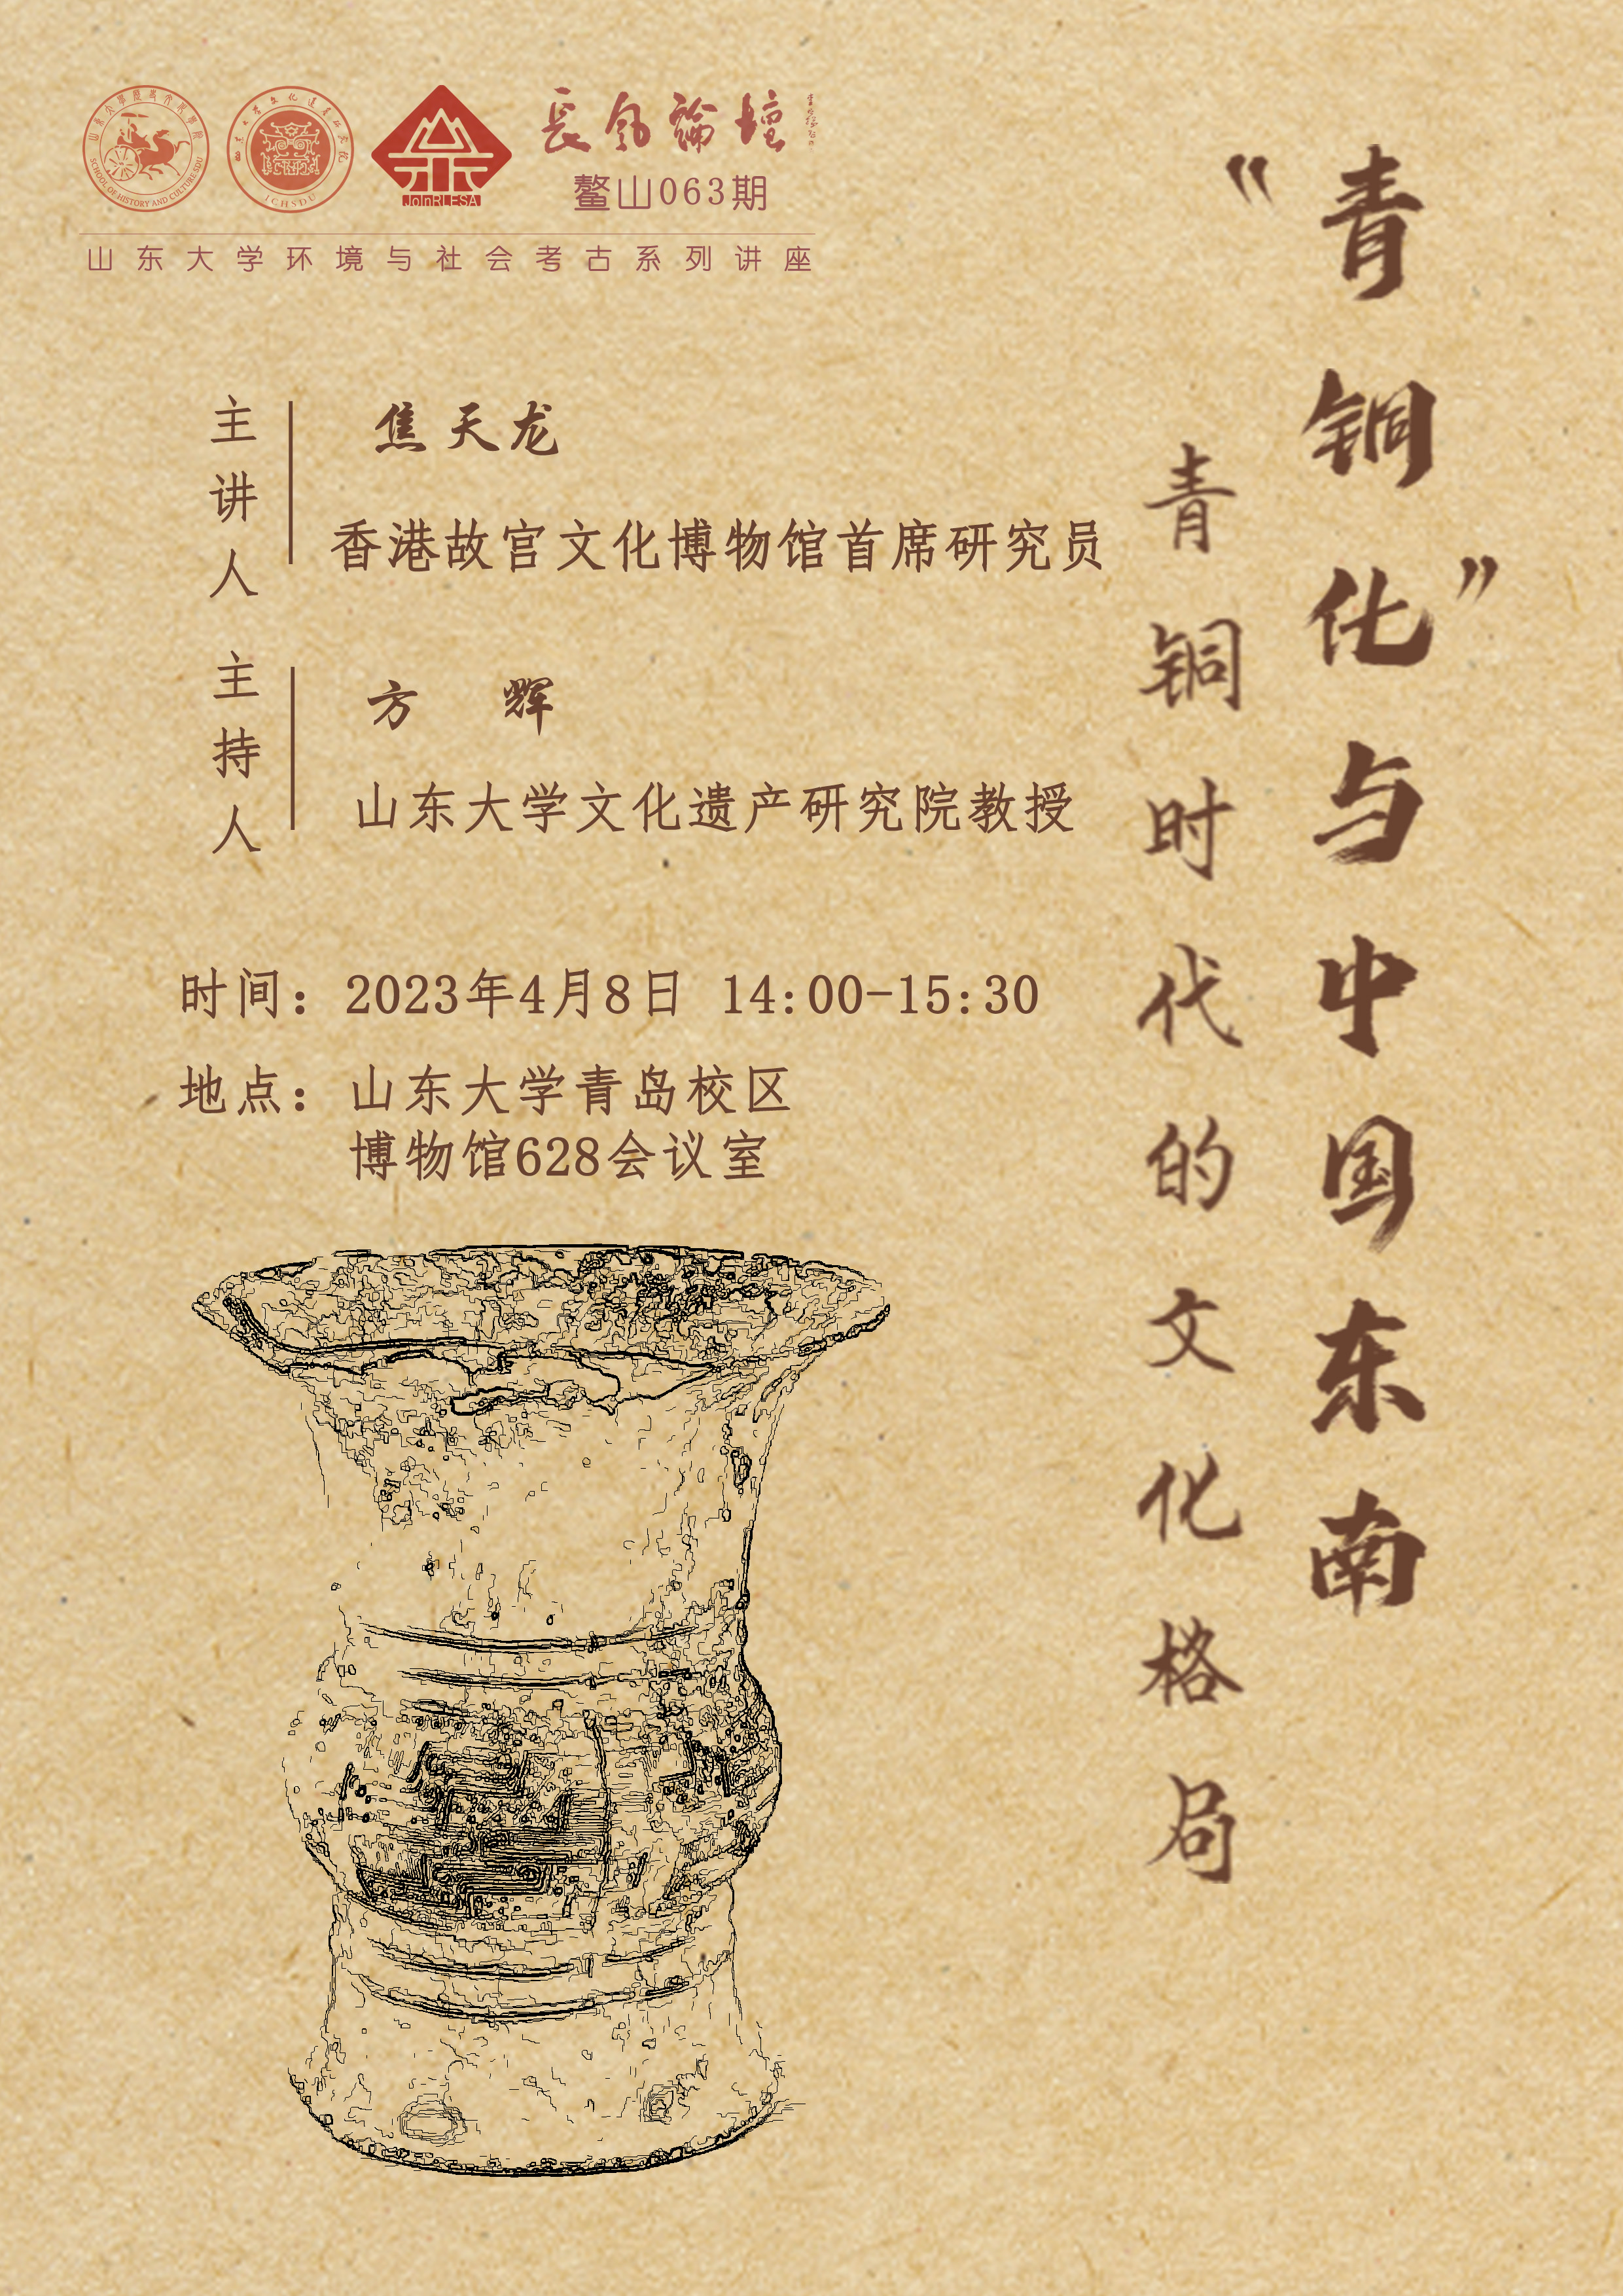 長風論壇
鳌山063期
SCHOOL OF HISTORY AND CULTURE SDU
ICHSDU
JoInRLESA
山东大学环境与社会考古系列讲座
“青铜化”与中国东南
青铜时代的文化格局
主讲人
焦天龙
香港故宫文化博物馆首席研究员
主持人
方 辉
山东大学文化遗产研究院教授
时间：2023年4月8日 14:00-15:30
地点：山东大学青岛校区
博物馆628会议室